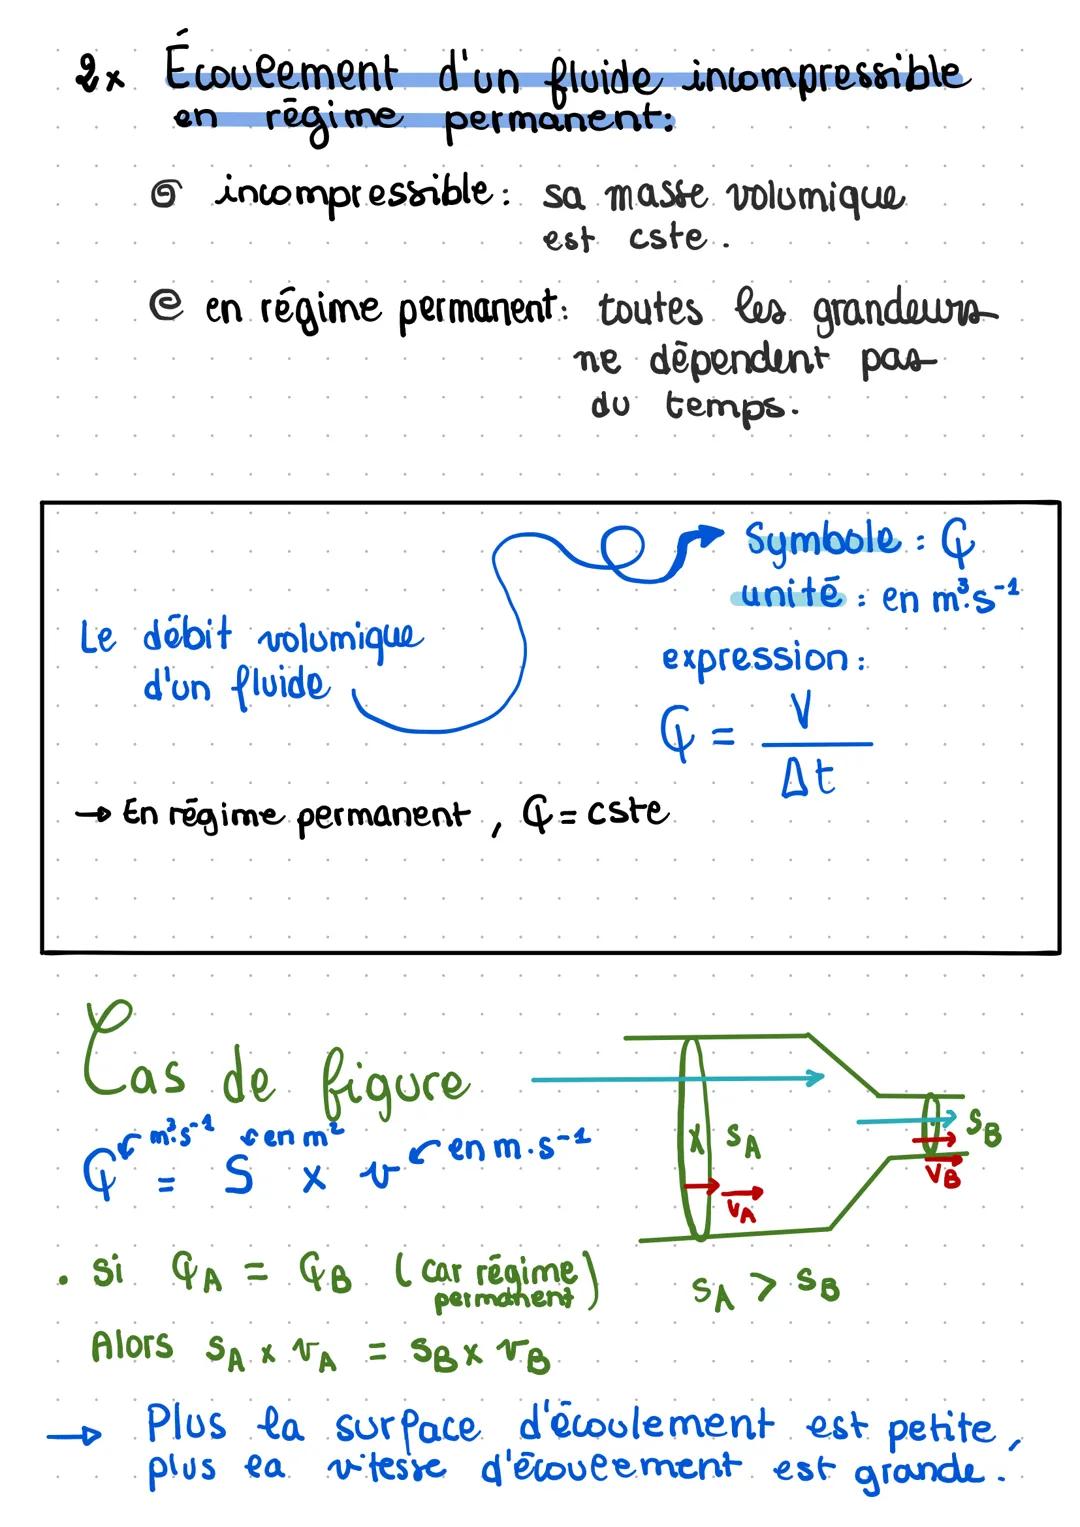 2x Écoulement d'un fluide incompressible
en régime permanent:
incompressible: sa masse volumique
est cste.
en régime permanent: toutes les grandeurs
ne dépendent pas
du temps.
Symbole: φ
unité: en m³.s⁻¹
Le débit volumique
d'un fluide
expression:
φ = V / Δt
→ En régime permanent, φ = cste
Cas de figure
m³.s⁻¹ en m² en m.s⁻¹
φ = S x v
X S_A
V_A
S_B
V_B
• Si φ_A = φ_B (car régime
permanent)
S_A > S_B
Alors S_A x v_A = S_B x v_B
→ Plus la surface d'écoulement est petite,
plus la vitesse d'écoulement est grande.